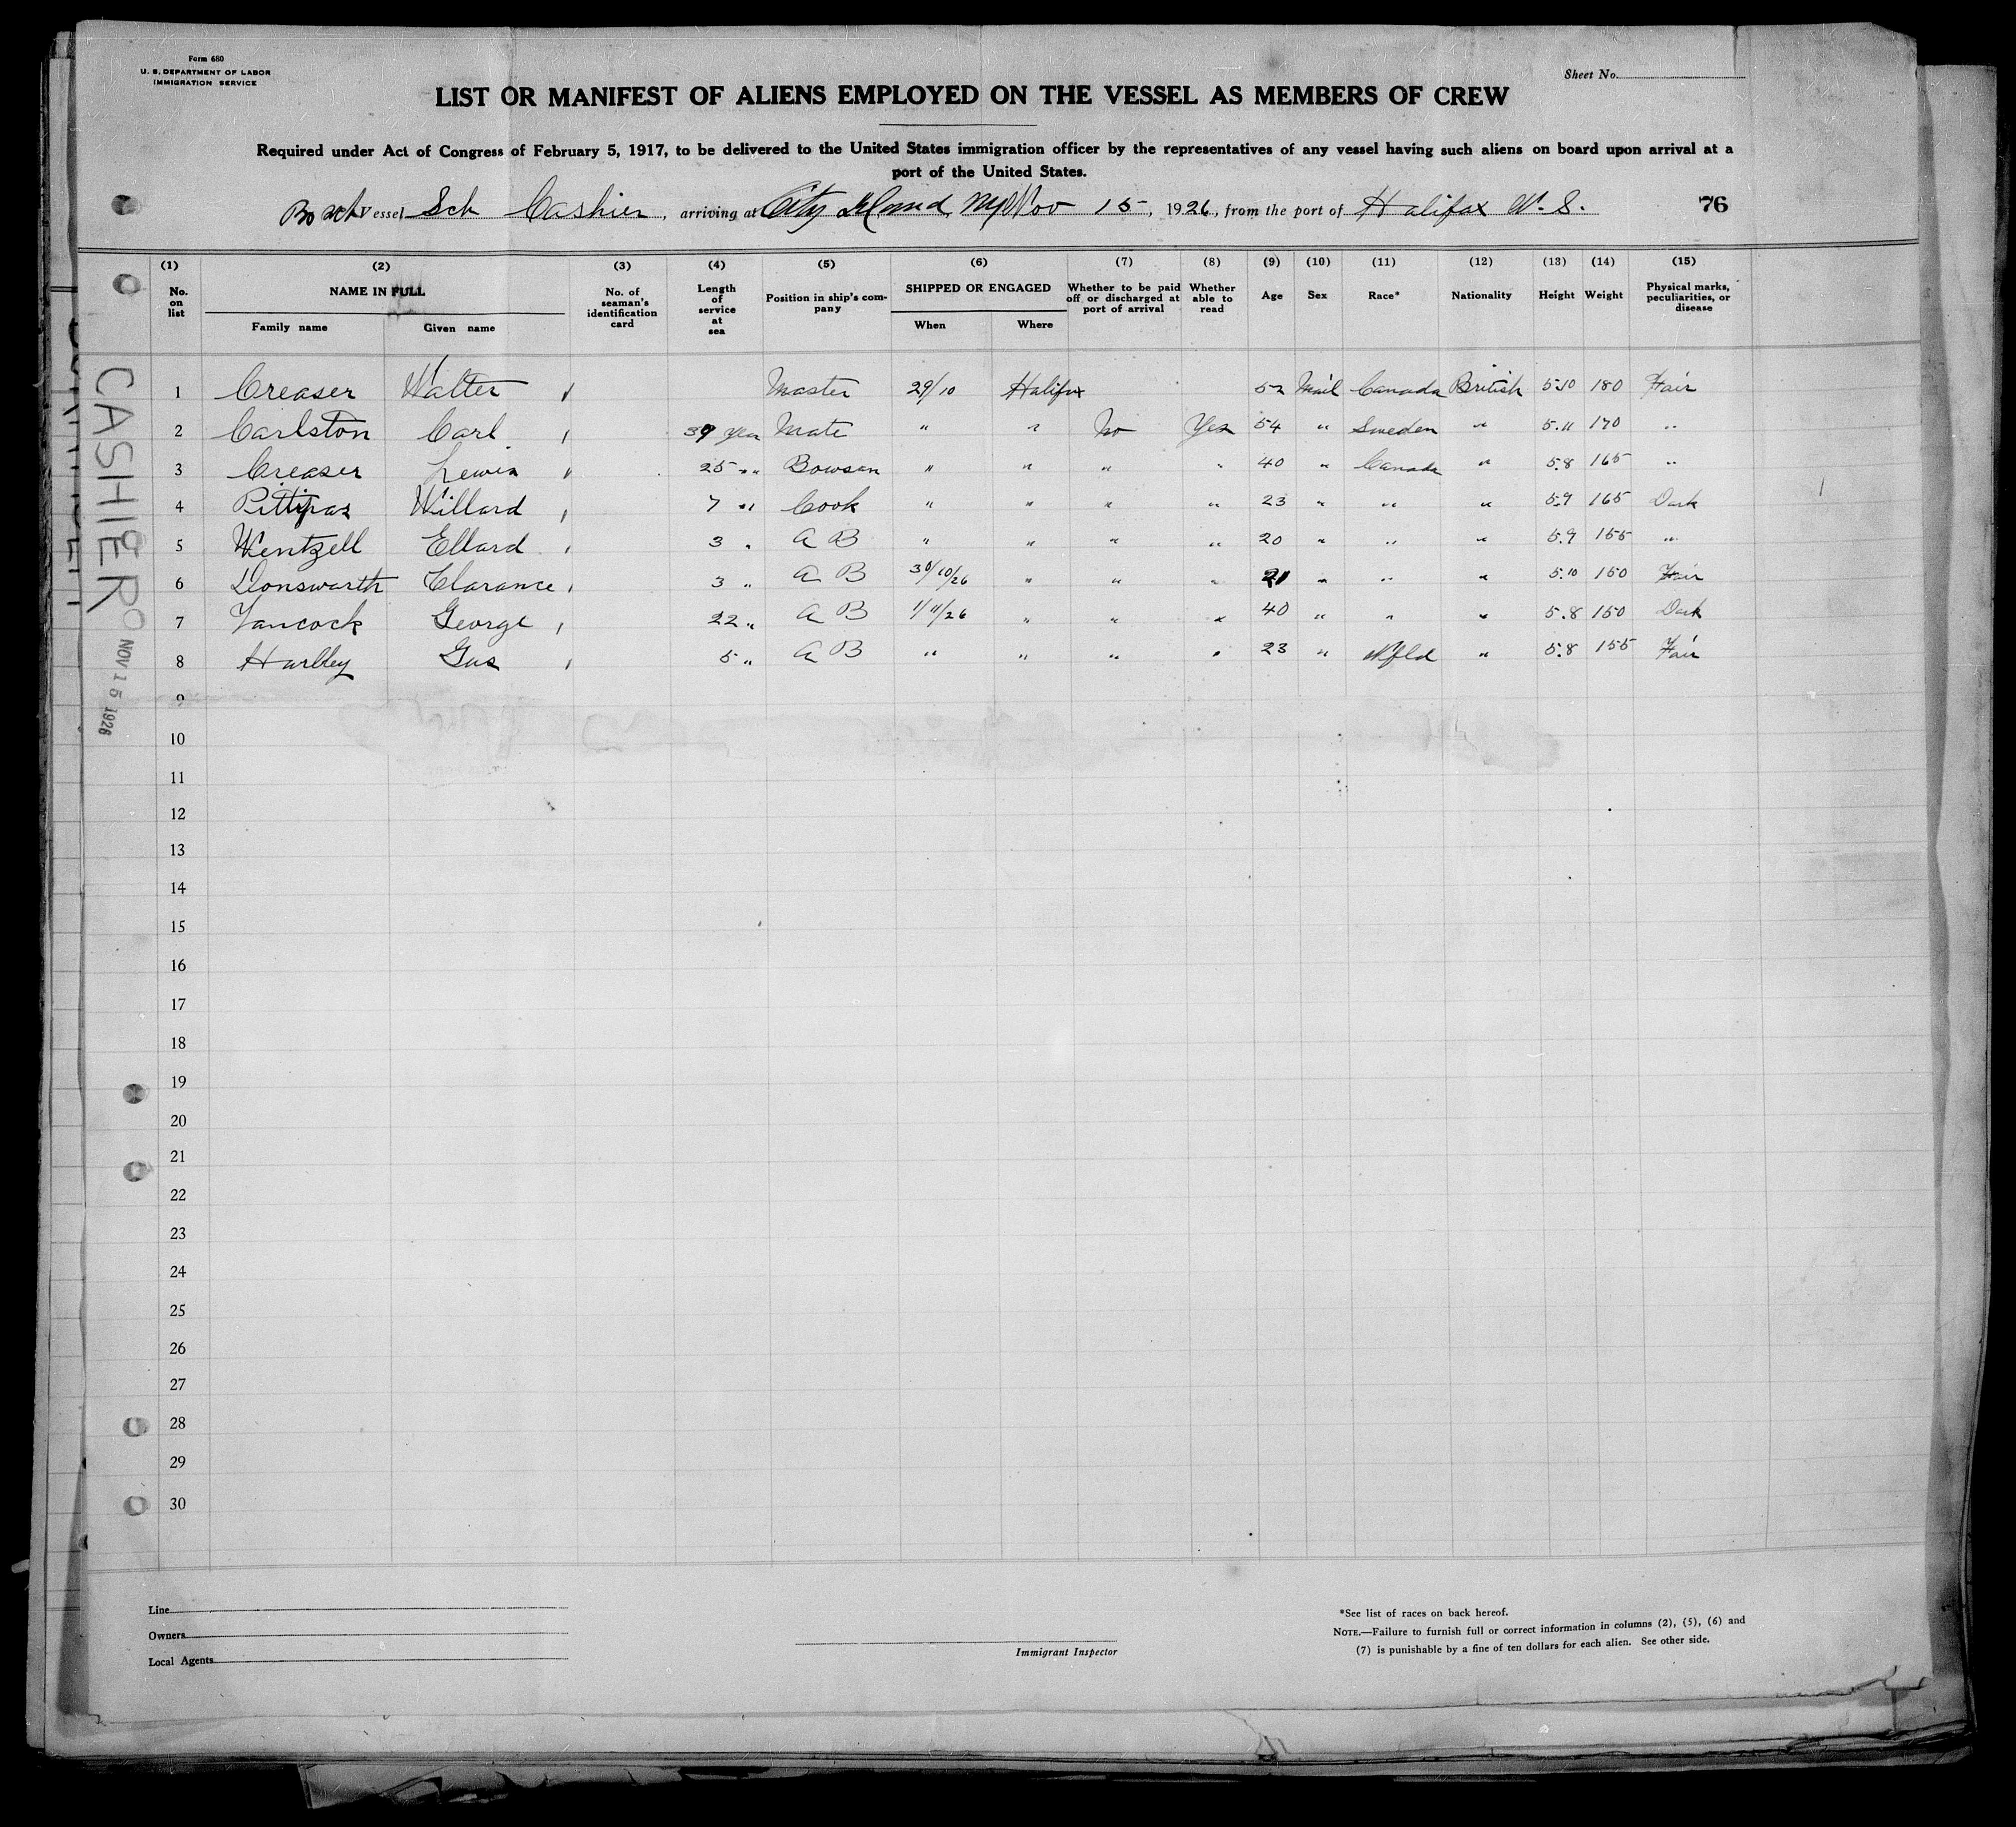 Form 680
U. S. DEPARTMENT OF LABOR
IMMIGRATION SERVICE
Sheet No.
LIST OR MANIFEST OF ALIENS EMPLOYED ON THE VESSEL AS MEMBERS OF CREW
Required under Act of Congress of February 5, 1917, to be delivered to the United States immigration officer by the representatives of any vessel having such aliens on board upon arrival at a
port of the United States.
Vessel Sch Cashier, arriving at City Island NY Nov 15, 1926, from the port of Halifax N. S. 76
(1) (2) (3) (4) (5) (6) (7) (8) (9) (10) (11) (12) (13) (14) (15)
No. on list NAME IN FULL Family name Given name No. of seaman's identification card Length of service at sea Position in ship's company SHIPPED OR ENGAGED When Where Whether to be paid off or discharged at port of arrival Whether able to read Age Sex Race* Nationality Height Weight Physical marks, peculiarities, or disease
1 Creaser Walter Master 29/10 Halifax 52 Mail Canada British 5.10 180 Fair
2 Carlston Carl 39 year Mate " " No Yes 54 " Sweden " 5.11 170 "
3 Creaser Lewis 25 " Bowsan " " " " 40 " Canada " 5.8 165 "
4 Pittipas Willard 7 " Cook " " " " 23 " " " 5.9 165 Dark
5 Wentzell Ellard 3 " A B " " " " 20 " " " 5.9 155 "
6 Donsworth Clarance 3 " A B 30/10/26 " " " 21 " " " 5.10 150 Fair
7 Vancock George 22 " A B 1/11/26 " " " 40 " " " 5.8 150 Dark
8 Gus 5 " A B " " " " 23 " Nfld " 5.8 155 Fair
9
10
11
12
13
14
15
16
17
18
19
20
21
22
23
24
25
26
27
28
29
30
CASHIER
NOV 15 1926
Line
Owners
Local Agents
Immigrant Inspector
*See list of races on back hereof.
NOTE.—Failure to furnish full or correct information in columns (2), (5), (6) and
(7) is punishable by a fine of ten dollars for each alien. See other side.